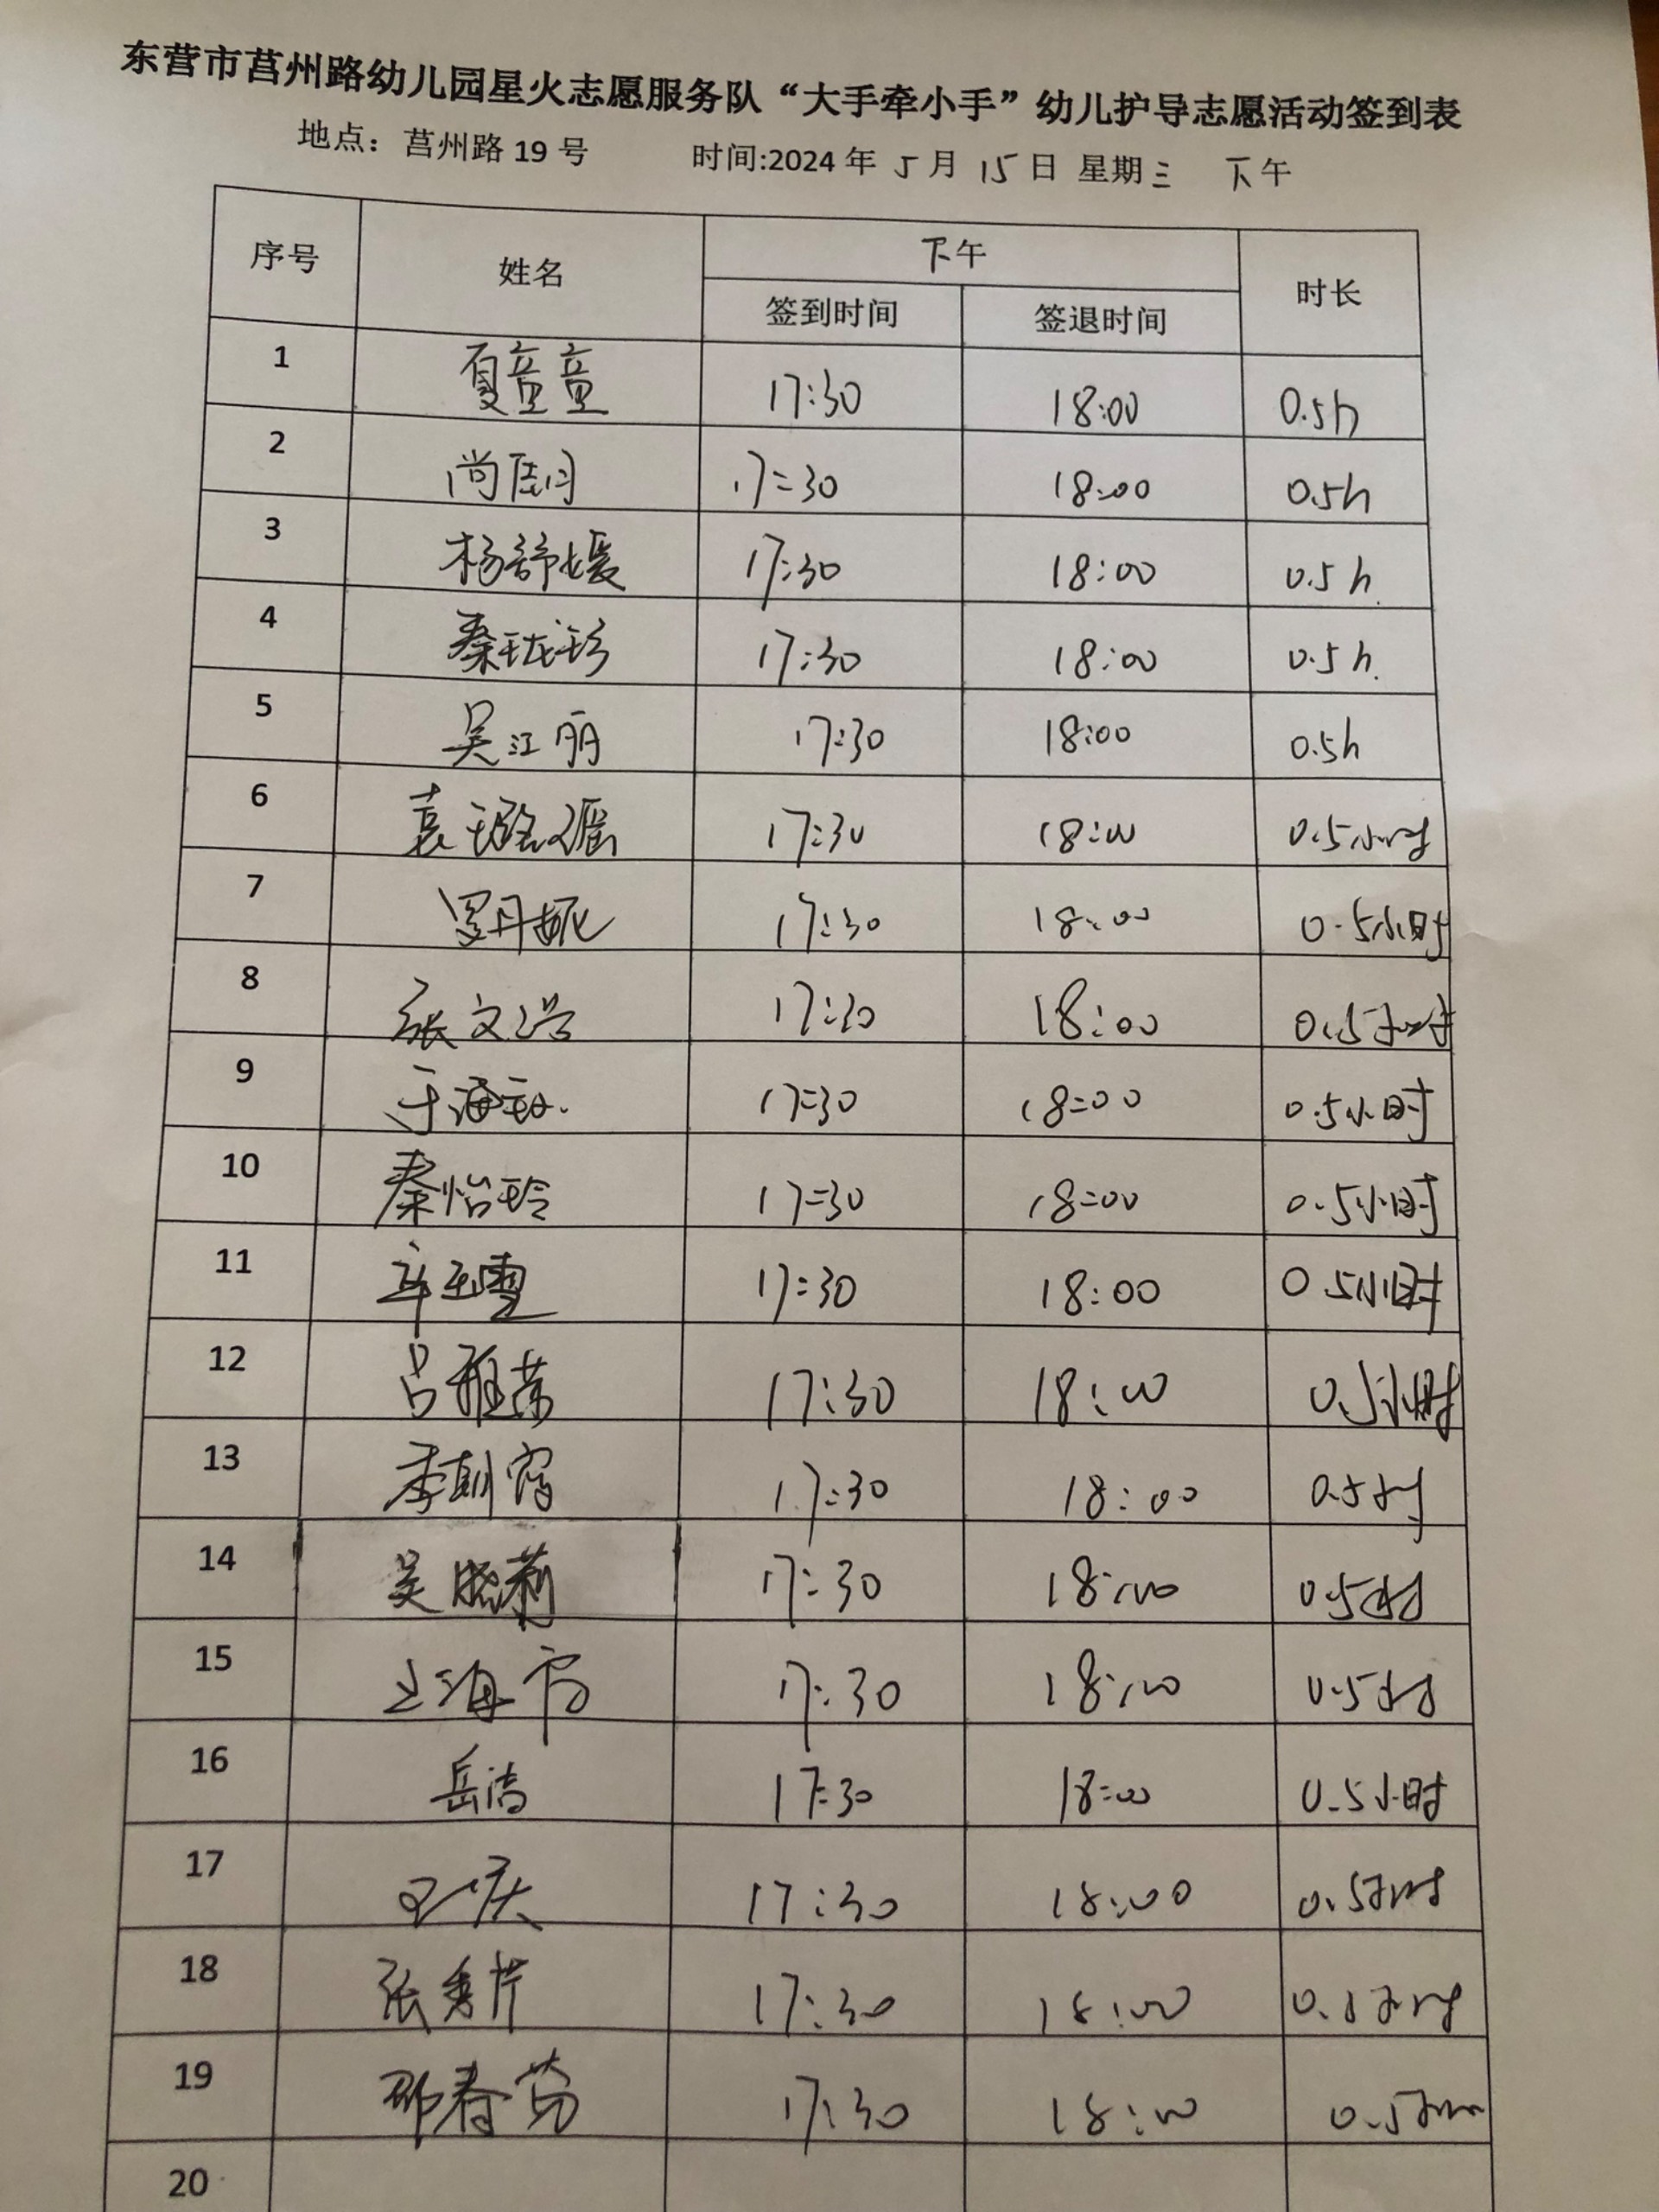 东营市莒州路幼儿园星火志愿服务队“大手牵小手”幼儿护导志愿活动签到表
地点：莒州路 19 号 时间:2024 年 5 月 15 日 星期三 下午
序号 姓名 下午 时长
签到时间 签退时间
1 夏童童 17:30 18:00 0.5h
2 尚 17:30 18:00 0.5h
3 杨舒媛 17:30 18:00 0.5h
4 秦珑珍 17:30 18:00 0.5h
5 吴江丽 17:30 18:00 0.5h
6 袁璐瑶 17:30 18:00 0.5小时
7 罗丹妮 17:30 18:00 0.5小时
8 张文浩 17:30 18:00 0.5小时
9 于海 17:30 18:00 0.5小时
10 秦怡玲 17:30 18:00 0.5小时
11 17:30 18:00 0.5小时
12 吕雅荣 17:30 18:00 0.5小时
13 李朝霞 17:30 18:00 0.5小时
14 吴晓莉 17:30 18:00 0.5小时
15 17:30 18:00 0.5小时
16 岳洁 17:30 18:00 0.5小时
17 王庆 17:30 18:00 0.5小时
18 张秀芹 17:30 18:00 0.5小时
19 邵春 17:30 18:00 0.5小时
20